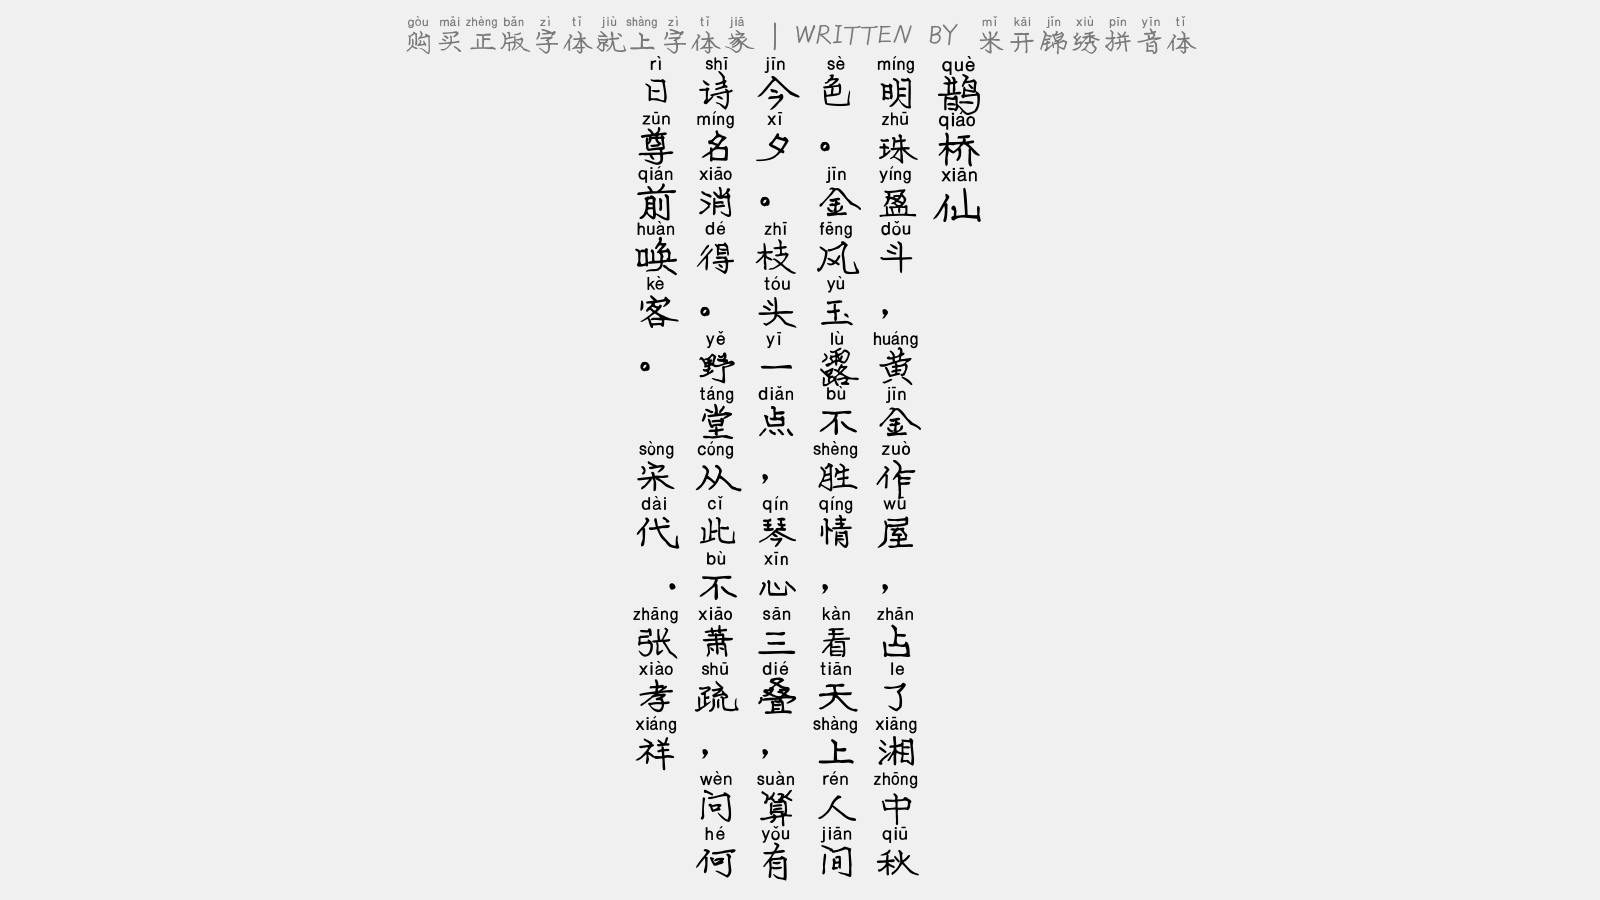 gòu mǎi zhèng bǎn zì tǐ jiù shàng zì tǐ jiā mǐ kāi jǐn xiù pīn yīn tǐ
购买正版字体就上字体家 | WRITTEN BY 米开锦绣拼音体
què qiáo xiān
鹊桥仙
míng zhū yíng dǒu huáng jīn zuò wū zhān le xiāng zhōng qiū
明珠盈斗，黄金作屋，占了湘中秋
sè jīn fēng yù lù bù shèng qíng kàn tiān shàng rén jiān
色。金风玉露不胜情，看天上人间
jīn xī zhī tóu yī diǎn qín xīn sān dié suàn yǒu
今夕。枝头一点，琴心三叠，算有
shī míng xiāo dé yě táng cóng cǐ bù xiāo shū wèn hé
诗名消得。野堂从此不萧疏，问何
rì zūn qián huàn kè sòng dài zhāng xiào xiáng
日尊前唤客。 宋代·张孝祥